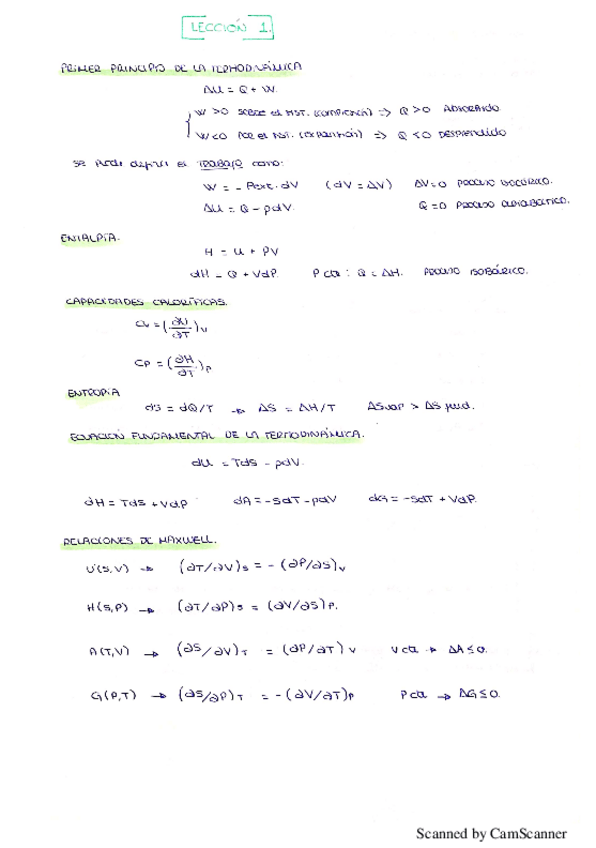 LECCIÓN 1.
PRIMER PRINCIPIO DE LA TERMODINÁMICA
ΔU = Q + W.
W >0 SOBRE el SIST. (COMPRESIÓN) => Q >0 ADSORBIDO.
W<0 POR el SIST. (EXPANSIÓN) => Q <0 DESPRENDIDO
SE PUEDE definir el TRABAJO como:
W = - Pext. dV (dV = ΔV) ΔV=0 PROCESO ISOCÓRICO.
ΔU = Q - pdV. Q=0 PROCESO ADIABÁTICO.
ENTALPÍA.
H = U + PV
dH = Q + VdP. P cta : Q = ΔH. PROCESO ISOBÁRICO.
CAPACIDADES CALORÍFICAS.
Cv = (∂U/∂T)v
CP = (∂H/∂T)P
ENTROPÍA
dS = dQ/T → ΔS = ΔH/T ΔSvap > ΔS fund.
ECUACIÓN FUNDAMENTAL DE LA TERMODINÁMICA.
dU = TdS - pdV.
dH = TdS + VdP dA = -SdT - pdV dG = -SdT + VdP.
RELACIONES DE MAXWELL.
U(S,V) → (∂T/∂V)s = - (∂P/∂S)v
H(S,P) → (∂T/∂P)s = (∂V/∂S)P.
A(T,V) → (∂S/∂V)T = (∂P/∂T)V V cta → ΔA ≤ 0.
G(P,T) → (∂S/∂P)T = - (∂V/∂T)P P cta → ΔG ≤ 0.
Scanned by CamScanner